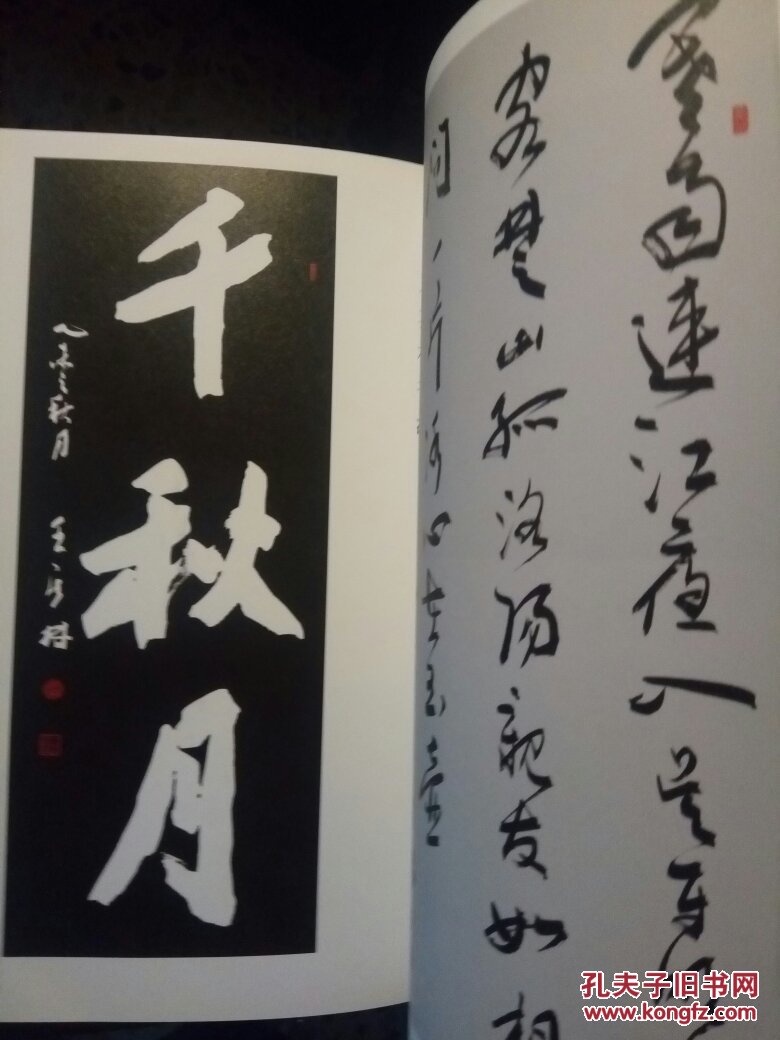 千秋月
乙未之秋月 王
寒雨連江夜入吴平
客楚山孤洛陽親友如相
問一片冰心在玉壺
孔夫子旧书网
www.kongfz.com